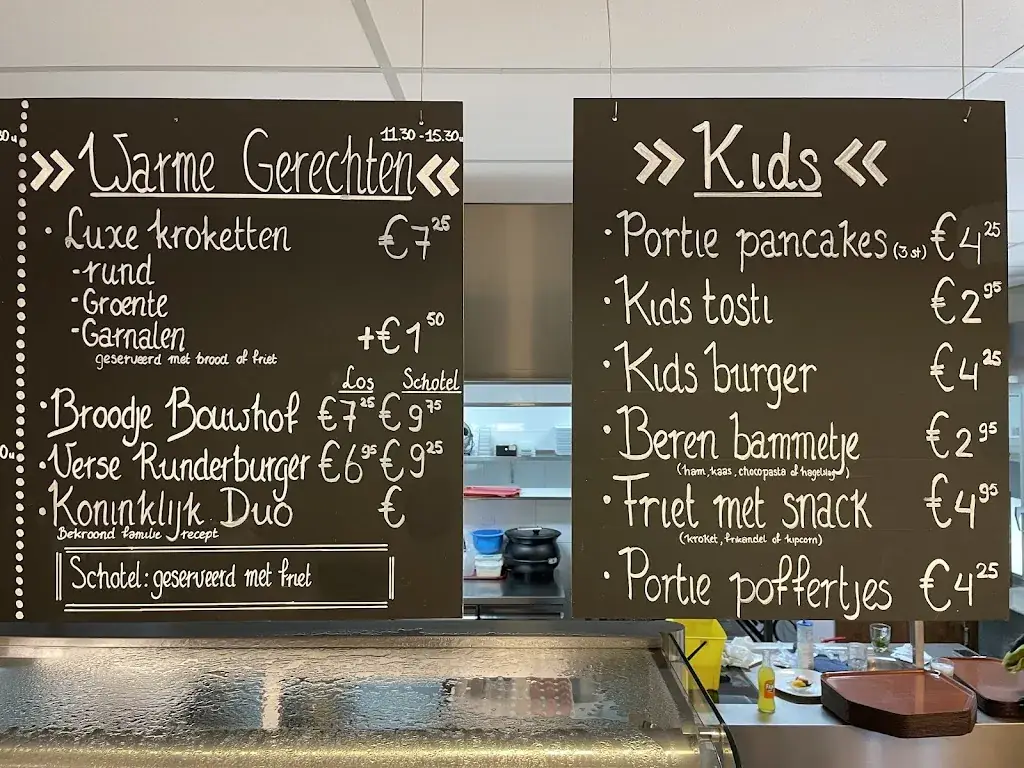 11.30 - 15.30u
» Warme Gerechten «
· Luxe kroketten €7 25
- rund
- Groente
- Garnalen +€1 50
geserveerd met brood of friet
Los Schotel
· Broodje Bouwhof €7 25 €9 75
· Verse Runderburger €6 95 €9 25
· Koninklijk Duo €
Bekroond familie recept
Schotel: geserveerd met friet
» Kids «
· Portie pancakes (3 st) €4 25
· Kids tosti €2 95
· Kids burger €4 25
· Beren bammetje €2 95
(ham, kaas, chocopasta of hagelslag)
· Friet met snack €4 95
(kroket, frikandel of kipcorn)
· Portie poffertjes €4 25